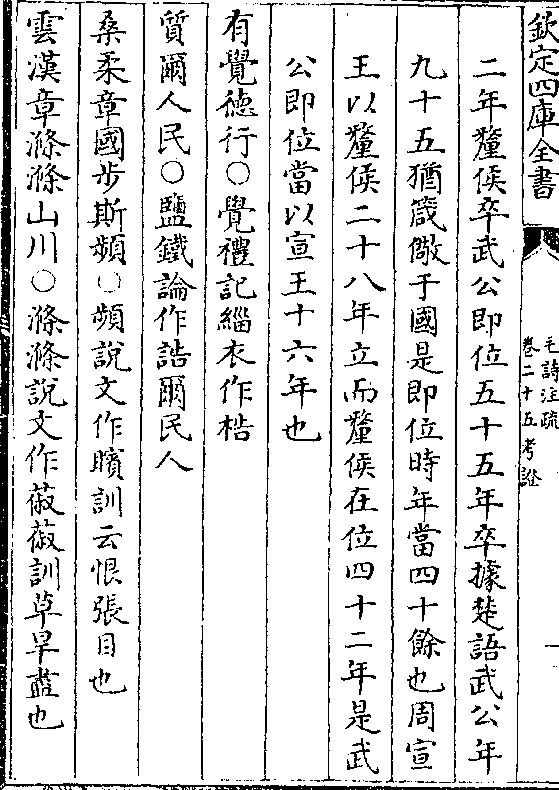 欽定四庫全書
毛詩注疏
卷二十五考證
一
二年釐侯卒武公即位五十五年卒據楚語武公年
九十五猶箴儆于國是即位時年當四十餘也周宣
王以釐侯二十八年立而釐侯在位四十二年是武
公即位當以宣王十六年也
有覺德行○覺禮記緇衣作梏
質爾人民○鹽鐵論作誥爾民人
桑柔章國步斯頻○頻說文作矉訓云恨張目也
雲漢章滌滌山川○滌滌說文作蔋蔋訓草旱盡也